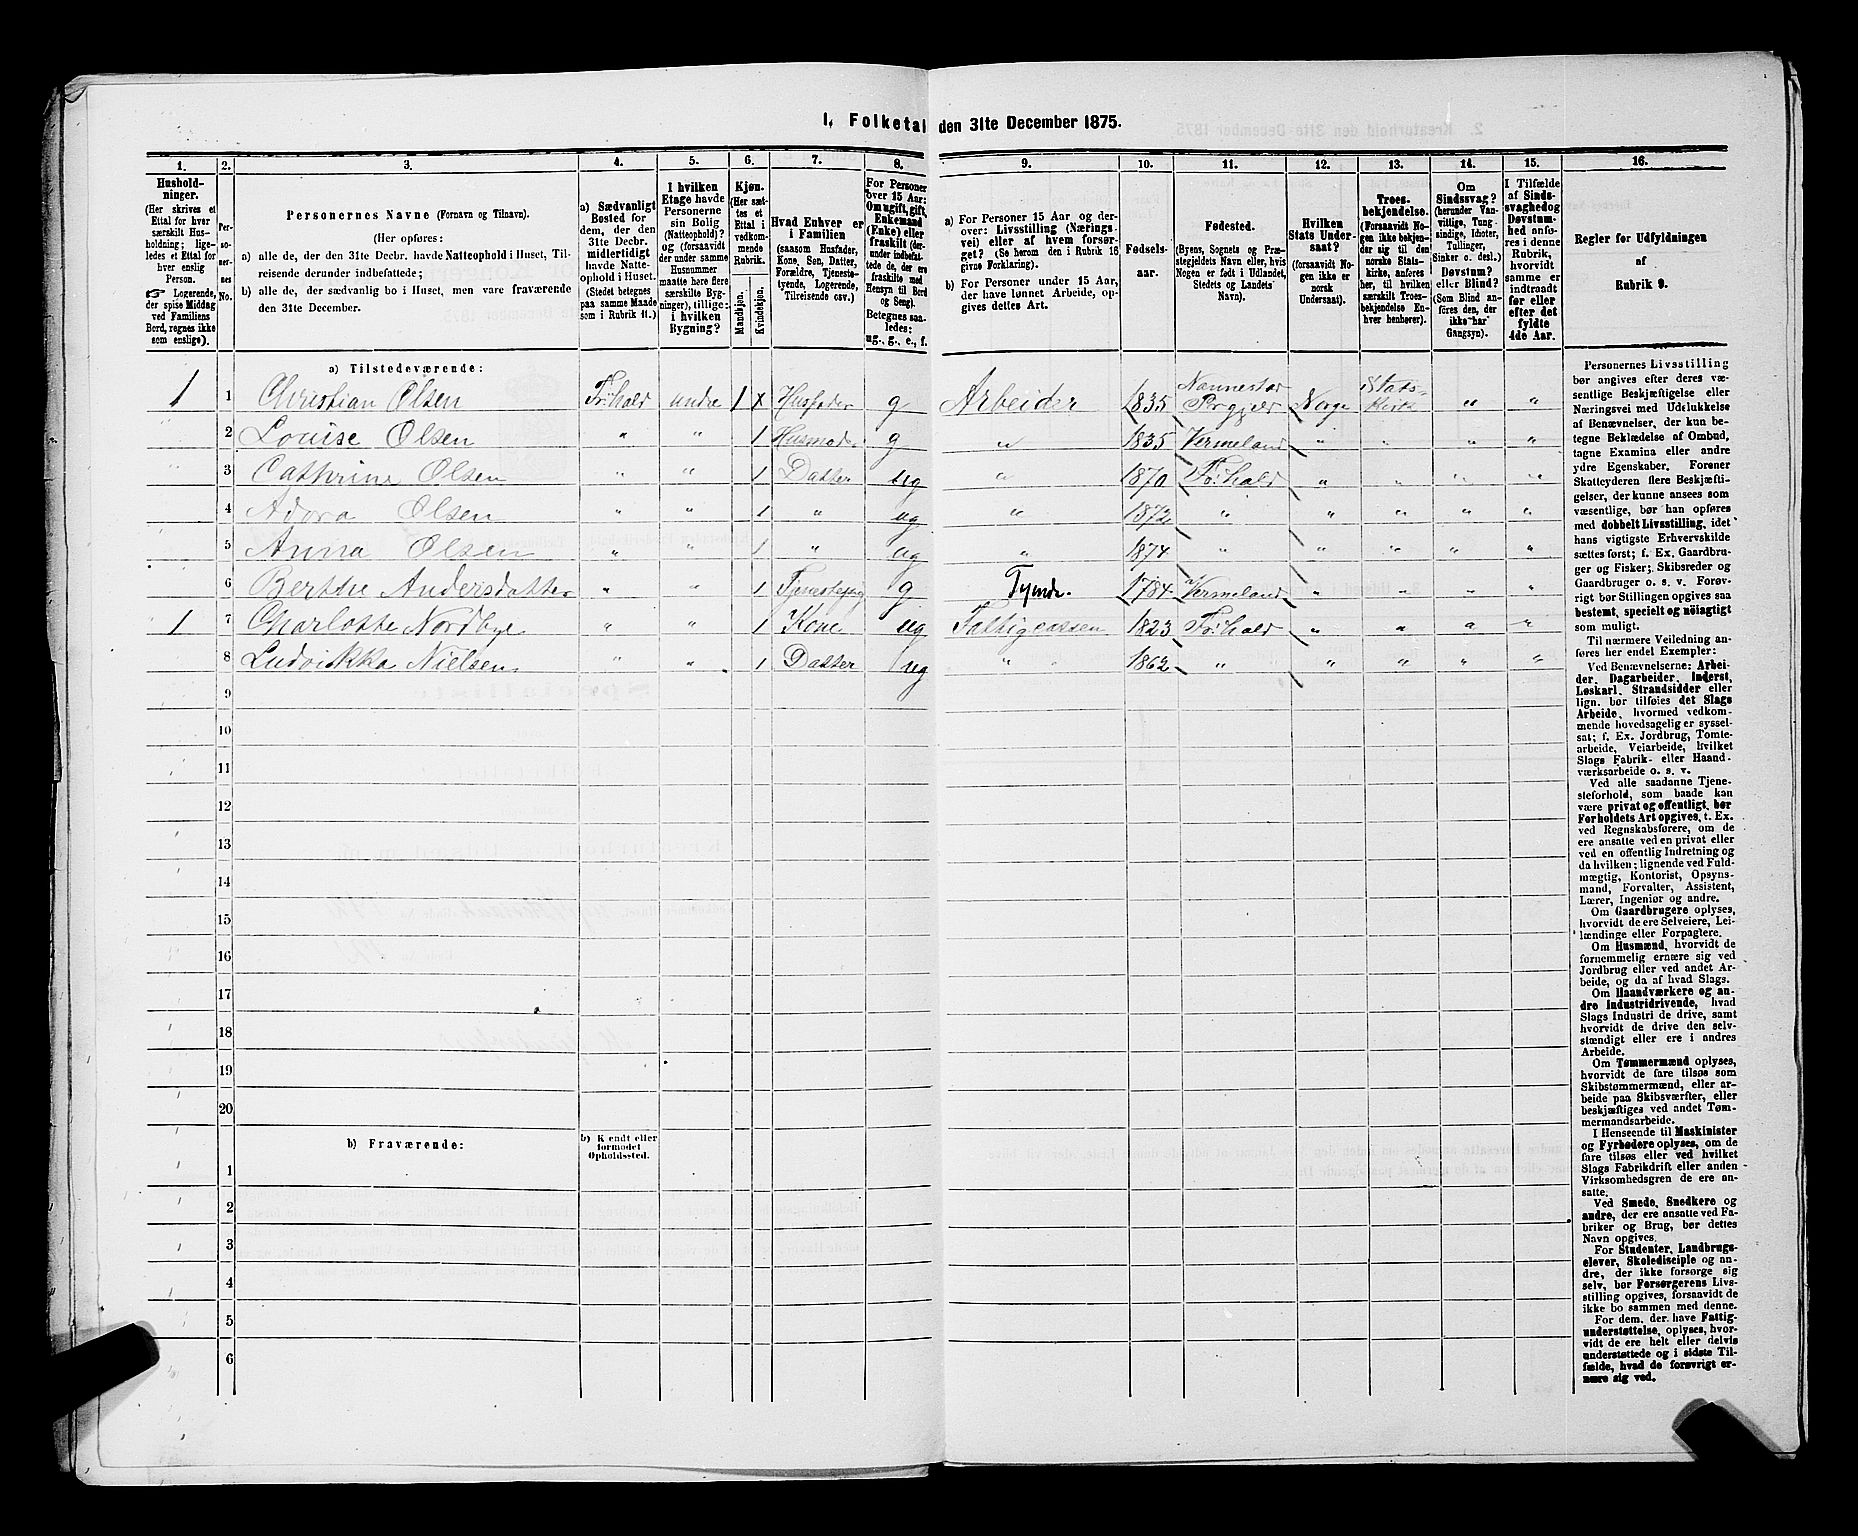 I. Folketal den 31te December 1875.
1. 2. 3. 4. 5. 6. 7. 8. 9. 10. 11. 12. 13. 14. 15. 16.
Hushold-
ninger.
(Her skrives et
Ettal for hver
særskilt Hus-
holdning; lige-
ledes et Ettal for
hver enslig
Person.
Logerende,
der spise Middag
ved Familiens
Bord, regnes ikke
som enslige).
Per-
so-
ner-
nes
No.
Personernes Navne (Fornavn og Tilnavn).
(Her opføres:
a) alle de, der den 31te Decbr. havde Natteophold i Huset, Til-
reisende derunder indbefattede;
b) alle de, der sædvanlig bo i Huset, men vare fraværende
den 31te December.
a) Sædvanligt
Bosted for
dem, der den
31te Decbr.
midlertidigt
havde Natte-
ophold i Huset.
(Stedet betegnes
paa samme Maade
som i Rubrik 11.)
I hvilken
Etage havde
Personerne
sin Bolig
(Natteophold)?
og (forsaavidt
der under samme
Husnummer
maatte høre flere
særskilte Byg-
ninger), tillige:
i hvilken
Bygning?
Kjøn.
(Her sæt-
tes et
Ettal i
vedkom-
mende
Rubrik.
Mandkjøn.
Kvindekjøn.
Hvad Enhver er
i Familien
(saasom Husfader,
Kone, Søn, Datter,
Forældre, Tjeneste-
tyende, Logerende,
Tilreisende osv.)
For Personer
over 15 Aar:
Om ugift, gift,
Enkemand
(Enke) eller
fraskilt (der-
under indbefat-
tede de, der ere
fraskilte med
Hensyn til Bord
og Seng).
Betegnes saa-
ledes:
ug., g., e., f.
a) For Personer 15 Aar og der-
over: Livsstilling (Nærings-
vei) eller af hvem forsør-
get? (Se herom den i Rubrik 16
givne Forklaring).
b) For Personer under 15 Aar,
der have lønnet Arbeide, op-
gives dettes Art.
Fødsels-
aar.
Fødested.
(Byens, Sognets og Præ-
stegjeldets Navn eller, hvis
Nogen er født i Udlandet,
Stedets og Landets
Navn).
Hvilken
Stats Under-
saat?
(forsaavidt No-
gen ikke er
norsk
Undersaat).
Troes-
bekjendelse.
(Forsaavidt No-
gen ikke bekjen-
der sig til den
norske Stats-
kirke, anføres
her, til hvilken
særskilt Troes-
bekjendelse En-
hver henhører).
Om
Sindssvag?
(herunder Van-
vittige, Tung-
sindige, Idioter,
Tullinger,
Sinker o. desl.)
Døvstum?
eller Blind?
(Som Blind an-
føres den, der
ikke har
Gangsyn).
I Tilfælde
af Sinds-
svaghed og
Døvstum-
hed anfø-
res i denne
Rubrik,
hvorvidt
samme er
indtraadt
før eller
efter det
fyldte
4de Aar.
Regler for Udfyldningen
af
Rubrik 9.
a) Tilstedeværende:
1 1 Christian Olsen Fr:hald undre 1 x Husfader g Arbeider 1835 Nannestad Prgjeld Norge Statskirke " "
2 Louise Olsen " " 1 Husmod. g " 1835 Vermeland " " " "
3 Cathrine Olsen " " 1 Datter ug " 1870 Fr:hald " " " "
4 Adora Olsen " " 1 " ug " 1872 " " " " "
5 Anna Olsen " " 1 " ug " 1874 " " " " "
6 Berthe Andersdatter " " 1 g Tyende. 1784 Vermeland " " " "
1 7 Charlotte Nordbye " " 1 Kone ug Fattigcassen 1823 Fr:hald " " " "
8 Ludvikka Nielsen " " 1 Datter ug " " 1862 " " " " "
9
10
11
12
13
14
15
16
17
18
19
20
b) Fraværende:
b) Kjendt eller
formodet
Opholdssted.
1
2
3
4
5
6
Personernes Livsstilling
bør angives efter deres væ-
sentlige Beskjæftigelse eller
Næringsvei med Udelukkelse
af Benævnelser, der kun be-
tegne Beklædelse af Ombud,
tagne Examina eller andre
ydre Egenskaber. Forener
Skatteyderen flere Beskjæfti-
gelser, der kunne ansees som
væsentlige, bør han opføres
med dobbelt Livsstilling, idet
hans vigtigste Erhvervskilde
sættes først; f. Ex. Gaardbru-
ger og Fisker; Skibsreder og
Gaardbruger o. s. v. Forøv-
rigt bør Stillingen opgives saa
bestemt, specielt og nøiagtigt
som muligt.
Til nærmere Veiledning an-
føres her endel Exempler:
Ved Benævnelserne: Arbei-
der, Dagarbeider, Inderst,
Løskarl, Strandsidder eller
lign. bør tilføies det Slags
Arbeide, hvormed vedkom-
mende hovedsagelig er syssel-
sat; f. Ex. Jordbrug, Tomte-
arbeide, Veiarbeide, hvilket
Slags Fabrik- eller Haand-
værksarbeide o. s. v.
Ved alle saadanne Tjene-
steforhold, som baade kan
være privat og offentligt, bør
Forholdets Art opgives, f. Ex.
ved Regnskabsførere, om de
ere ansatte ved en privat eller
ved en offentlig Indretning og
da hvilken; lignende ved Fuld-
mægtig, Kontorist, Opsyns-
mand, Forvalter, Assistent,
Lærer, Ingeniør og andre.
Om Gaardbrugere oplyses,
hvorvidt de ere Selveiere, Lei-
lændinge eller Forpagtere.
Om Husmænd, hvorvidt de
fornemmelig ernære sig ved
Jordbrug eller ved andet Ar-
beide, og da af hvad Slags.
Om Haandværkere og an-
dre Industridrivende, hvad
Slags Industri de drive, samt
hvorvidt de drive den selv-
stændigt eller ere i andres
Arbeide.
Om Tømmermænd oplyses,
hvorvidt de fare tilsøs som
Skibstømmermænd, eller ar-
beide paa Skibsværfter, eller
beskjæftiges ved andet Tøm-
mermandsarbeide.
I Henseende til Maskinister
og Fyrbødere oplyses, om de
fare tilsøs eller ved hvilket
Slags Fabrikdrift eller anden
Virksomhedsgren de ere an-
satte.
Ved Smede, Snedkere og
andre, der ere ansatte ved Fa-
briker og Brug, bør dettes
Navn opgives.
For Studenter, Landbrugs-
elever, Skoledisciple og an-
dre, der ikke forsørge sig
selv, bør Forsørgerens Livs-
stilling opgives, forsaavidt de
ikke bo sammen med denne.
For dem, der have Fattig-
understøttelse, oplyses, hvor-
vidt de ere helt eller delvis
understøttede og i sidste Til-
fælde, hvad de forøvrigt er-
nære sig ved.